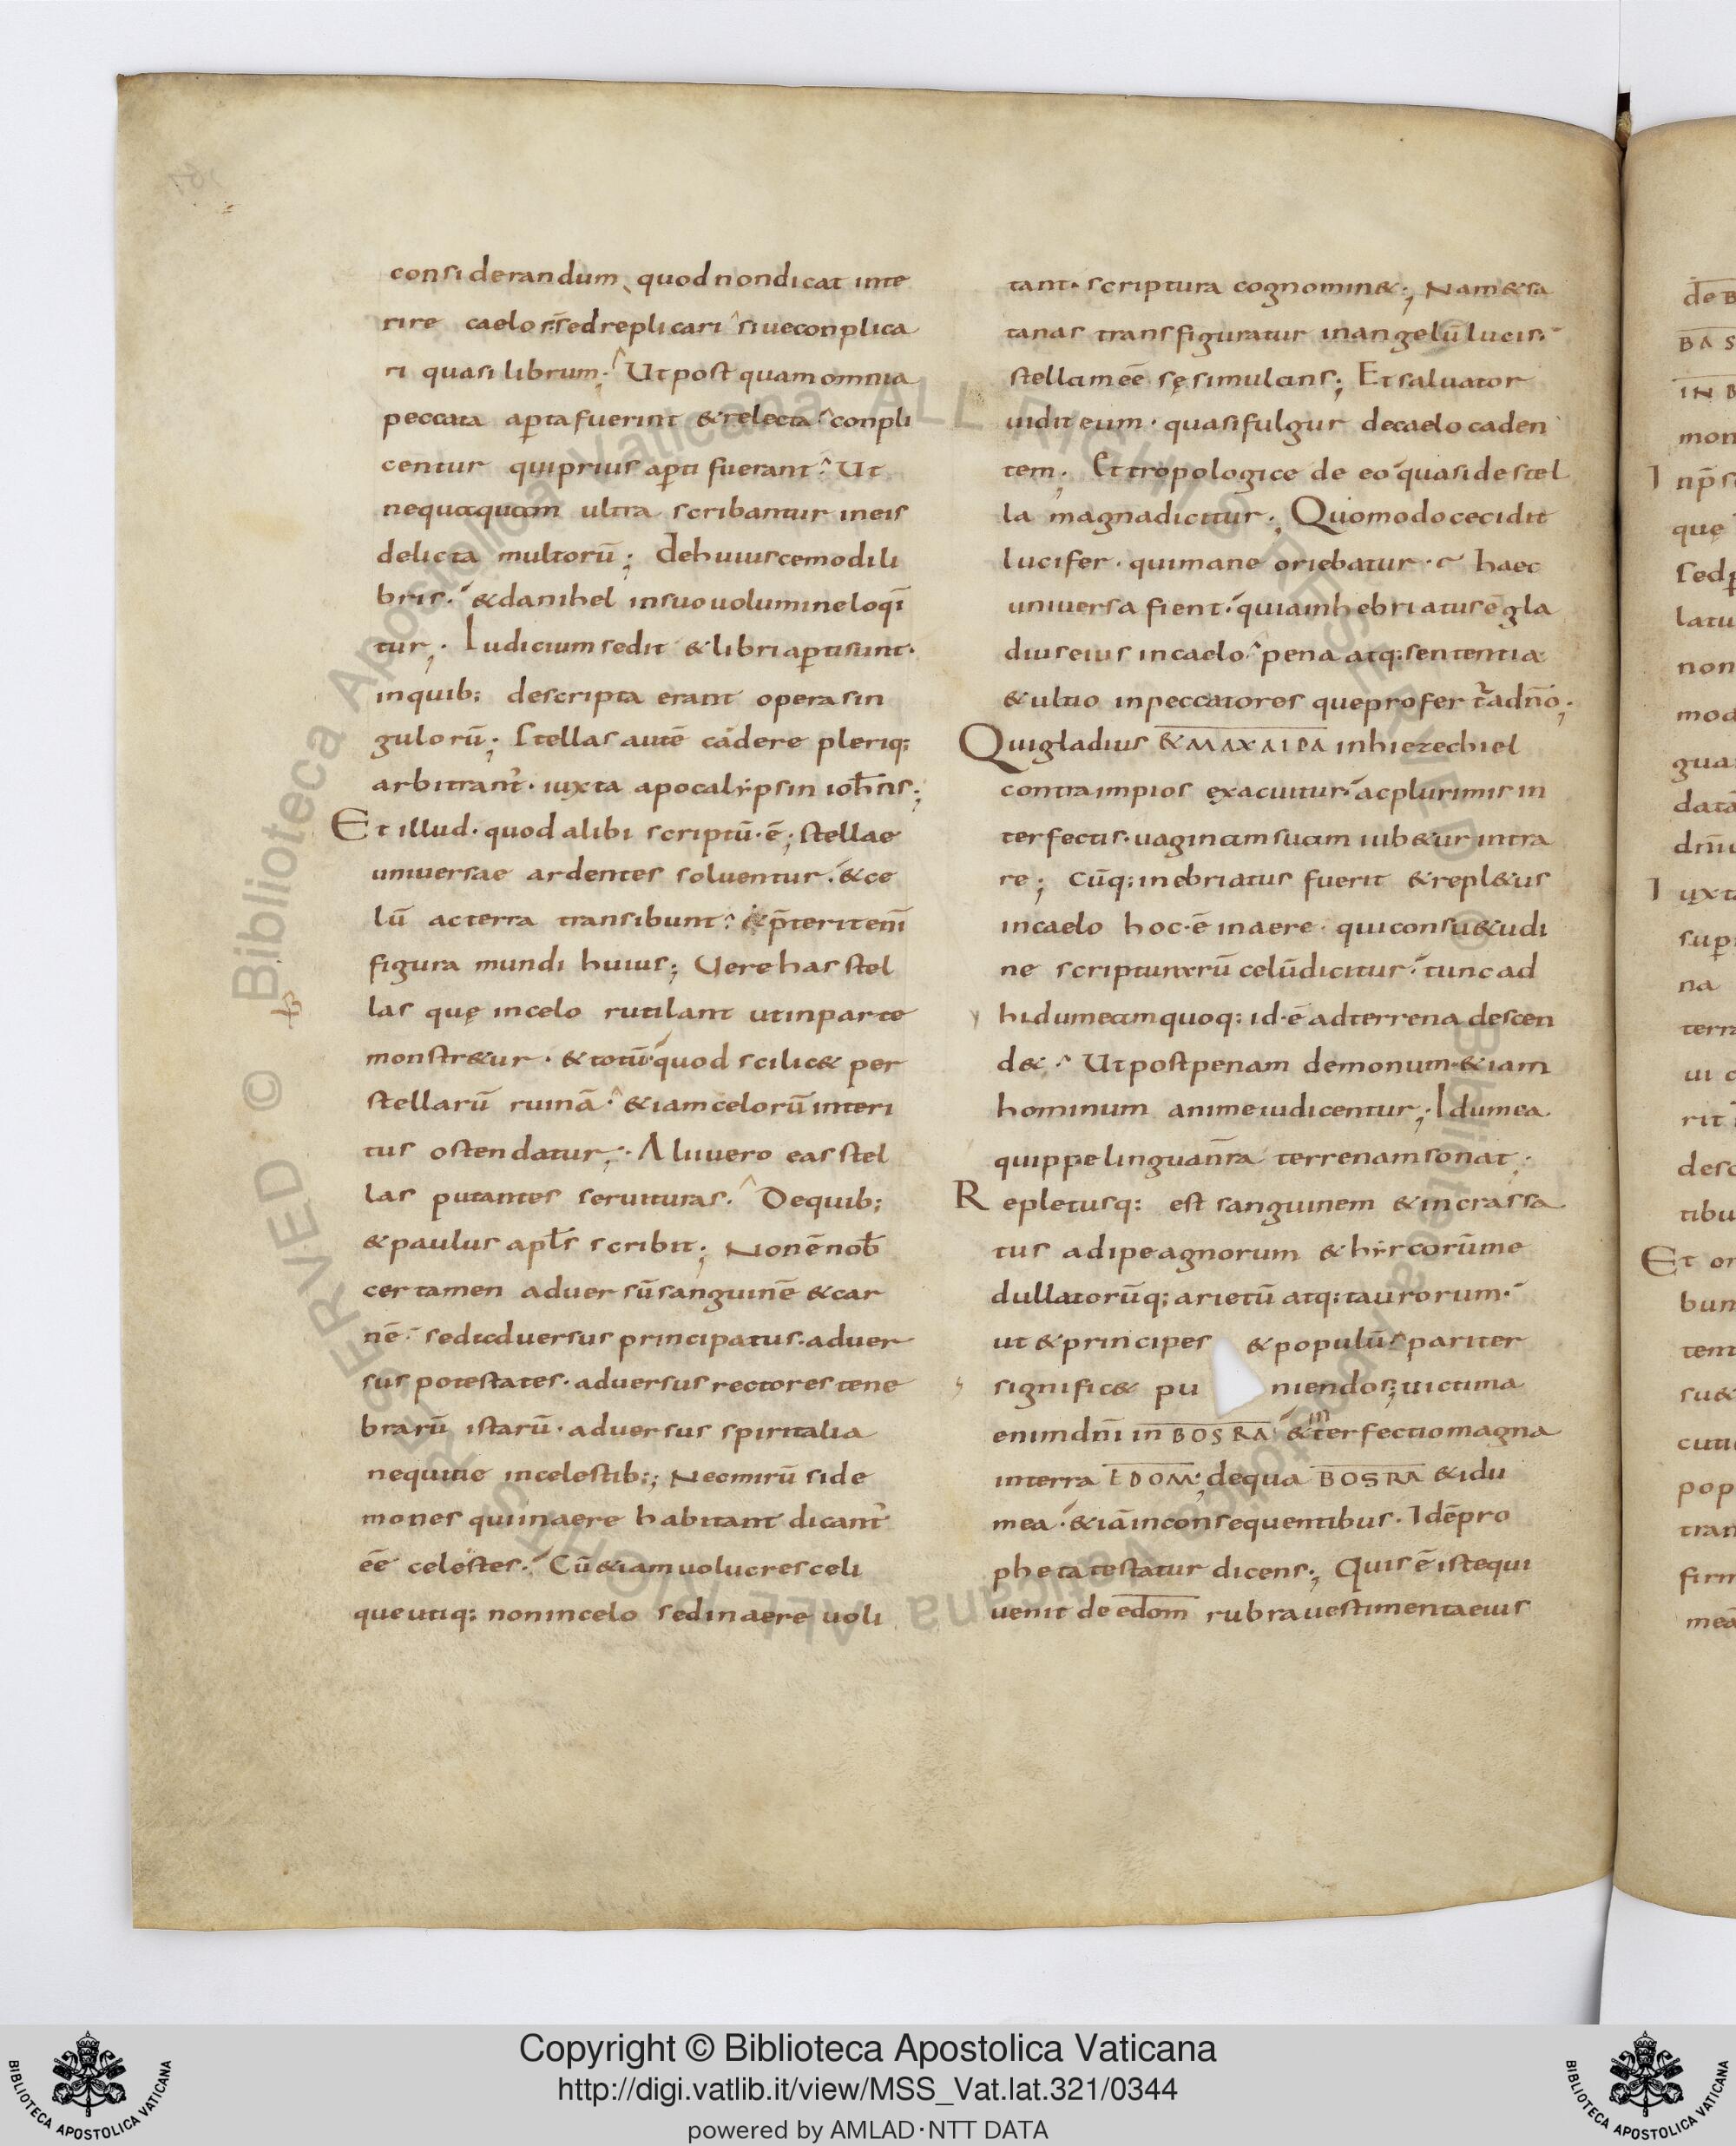 considerandum, quod non dicat inte
rire caelos· sed replicari siue conplica
ri quasi librum; Ut postquam omnia
peccata aꝑta fuerint & relecta conpli
centur qui prius aꝑti fuerant· Ut
nequaquam ultra scribantur in eis
delicta multorū; De huiuscemodi li
bris· & danihel in suo uolumine loqi
tur; Iudicium sedit & libri aꝑti sunt·
in quib; descripta erant opera sin
gulorū; Stellas autē cadere pleriq;
arbitrant᷑· iuxta apocalẏpsin ioh̄nis;
Et illud· quod alibi scriptū·ē; stellae
uniuersae ardentes soluentur· & ce
lū ac terra transibunt· & p̄terit eni̅
figura mundi huius; Uere has stel
las quę in celo rutilant ut in parte
monstr&ur· & totū· quod scilic& per
stellarū ruinā· &iam celorū interi
tus ostendatur; Alii uero eas stel
las putantes seruituras· De quib;
& paulus apl̄s scribit; Non ē nob̄
certamen aduersū sanguinē & car
nē· sed aduersus principatus· aduer
sus potestates· aduersus rectores tene
brarū istarū· aduersus spiritalia
nequitie in celestib;; Nec mirū si de
mones qui in aere habitant dicant᷑
ēē celestes· Cū &iam uolucres celi
que utiq; non in celo sed in aere uoli
tant· scriptura cognomin&; Nam & sa
tanas transfiguratur in angelū lucis·
stellam ēē sę simulans; Et saluator
uidit eum· quasi fulgur de caelo caden
tem; Et tropologice de eo quasi de stel
la magna dicitur; Quomodo cecidit
lucifer· qui mane oriebatur· haec
uniuersa fient· quia inhebriatus ē gla
dius eius in caelo· pena atq; sententia
& ultio in peccatores que profert᷑ a dn̄o;
Qui gladius & ΜΑΧΑΙΡΑ in hiezechiel
contra impios exacuitur· ac plurimis in
terfectis· uaginam suam iub&ur intra
re; Cūq; inebriatus fuerit & repl&us
in caelo hoc·ē in aere· qui consu&udi
ne scripturarū celū dicitur· tunc ad
hidumeam quoq; id·ē ad terrena descen
d&· Ut post penam demonum· &iam
hominum anime iudicentur; Idumea
quippe lingua nr̄a terrenam sonat;
Repletusq; est sanguinem & incrassa
tus adipe agnorum & hẏrcorū me
dullatorūq; arietū atq; taurorum·
ut & principes & populū pariter
signific& pu niendos; uictima
enim dn̄i in BOSRA· & interfectio magna
in terra EDOM; de qua BOSRA & idu
mea· & iā in consequentibus· Idē pro
pheta testatur dicens; Quis ē iste qui
uenit de edom rubra uestimenta eius
Copyright © Biblioteca Apostolica Vaticana
http://digi.vatlib.it/view/MSS_Vat.lat.321/0344
powered by AMLAD·NTT DATA
BIBLIOTECA APOSTOLICA VATICANA
BIBLIOTECA APOSTOLICA VATICANA